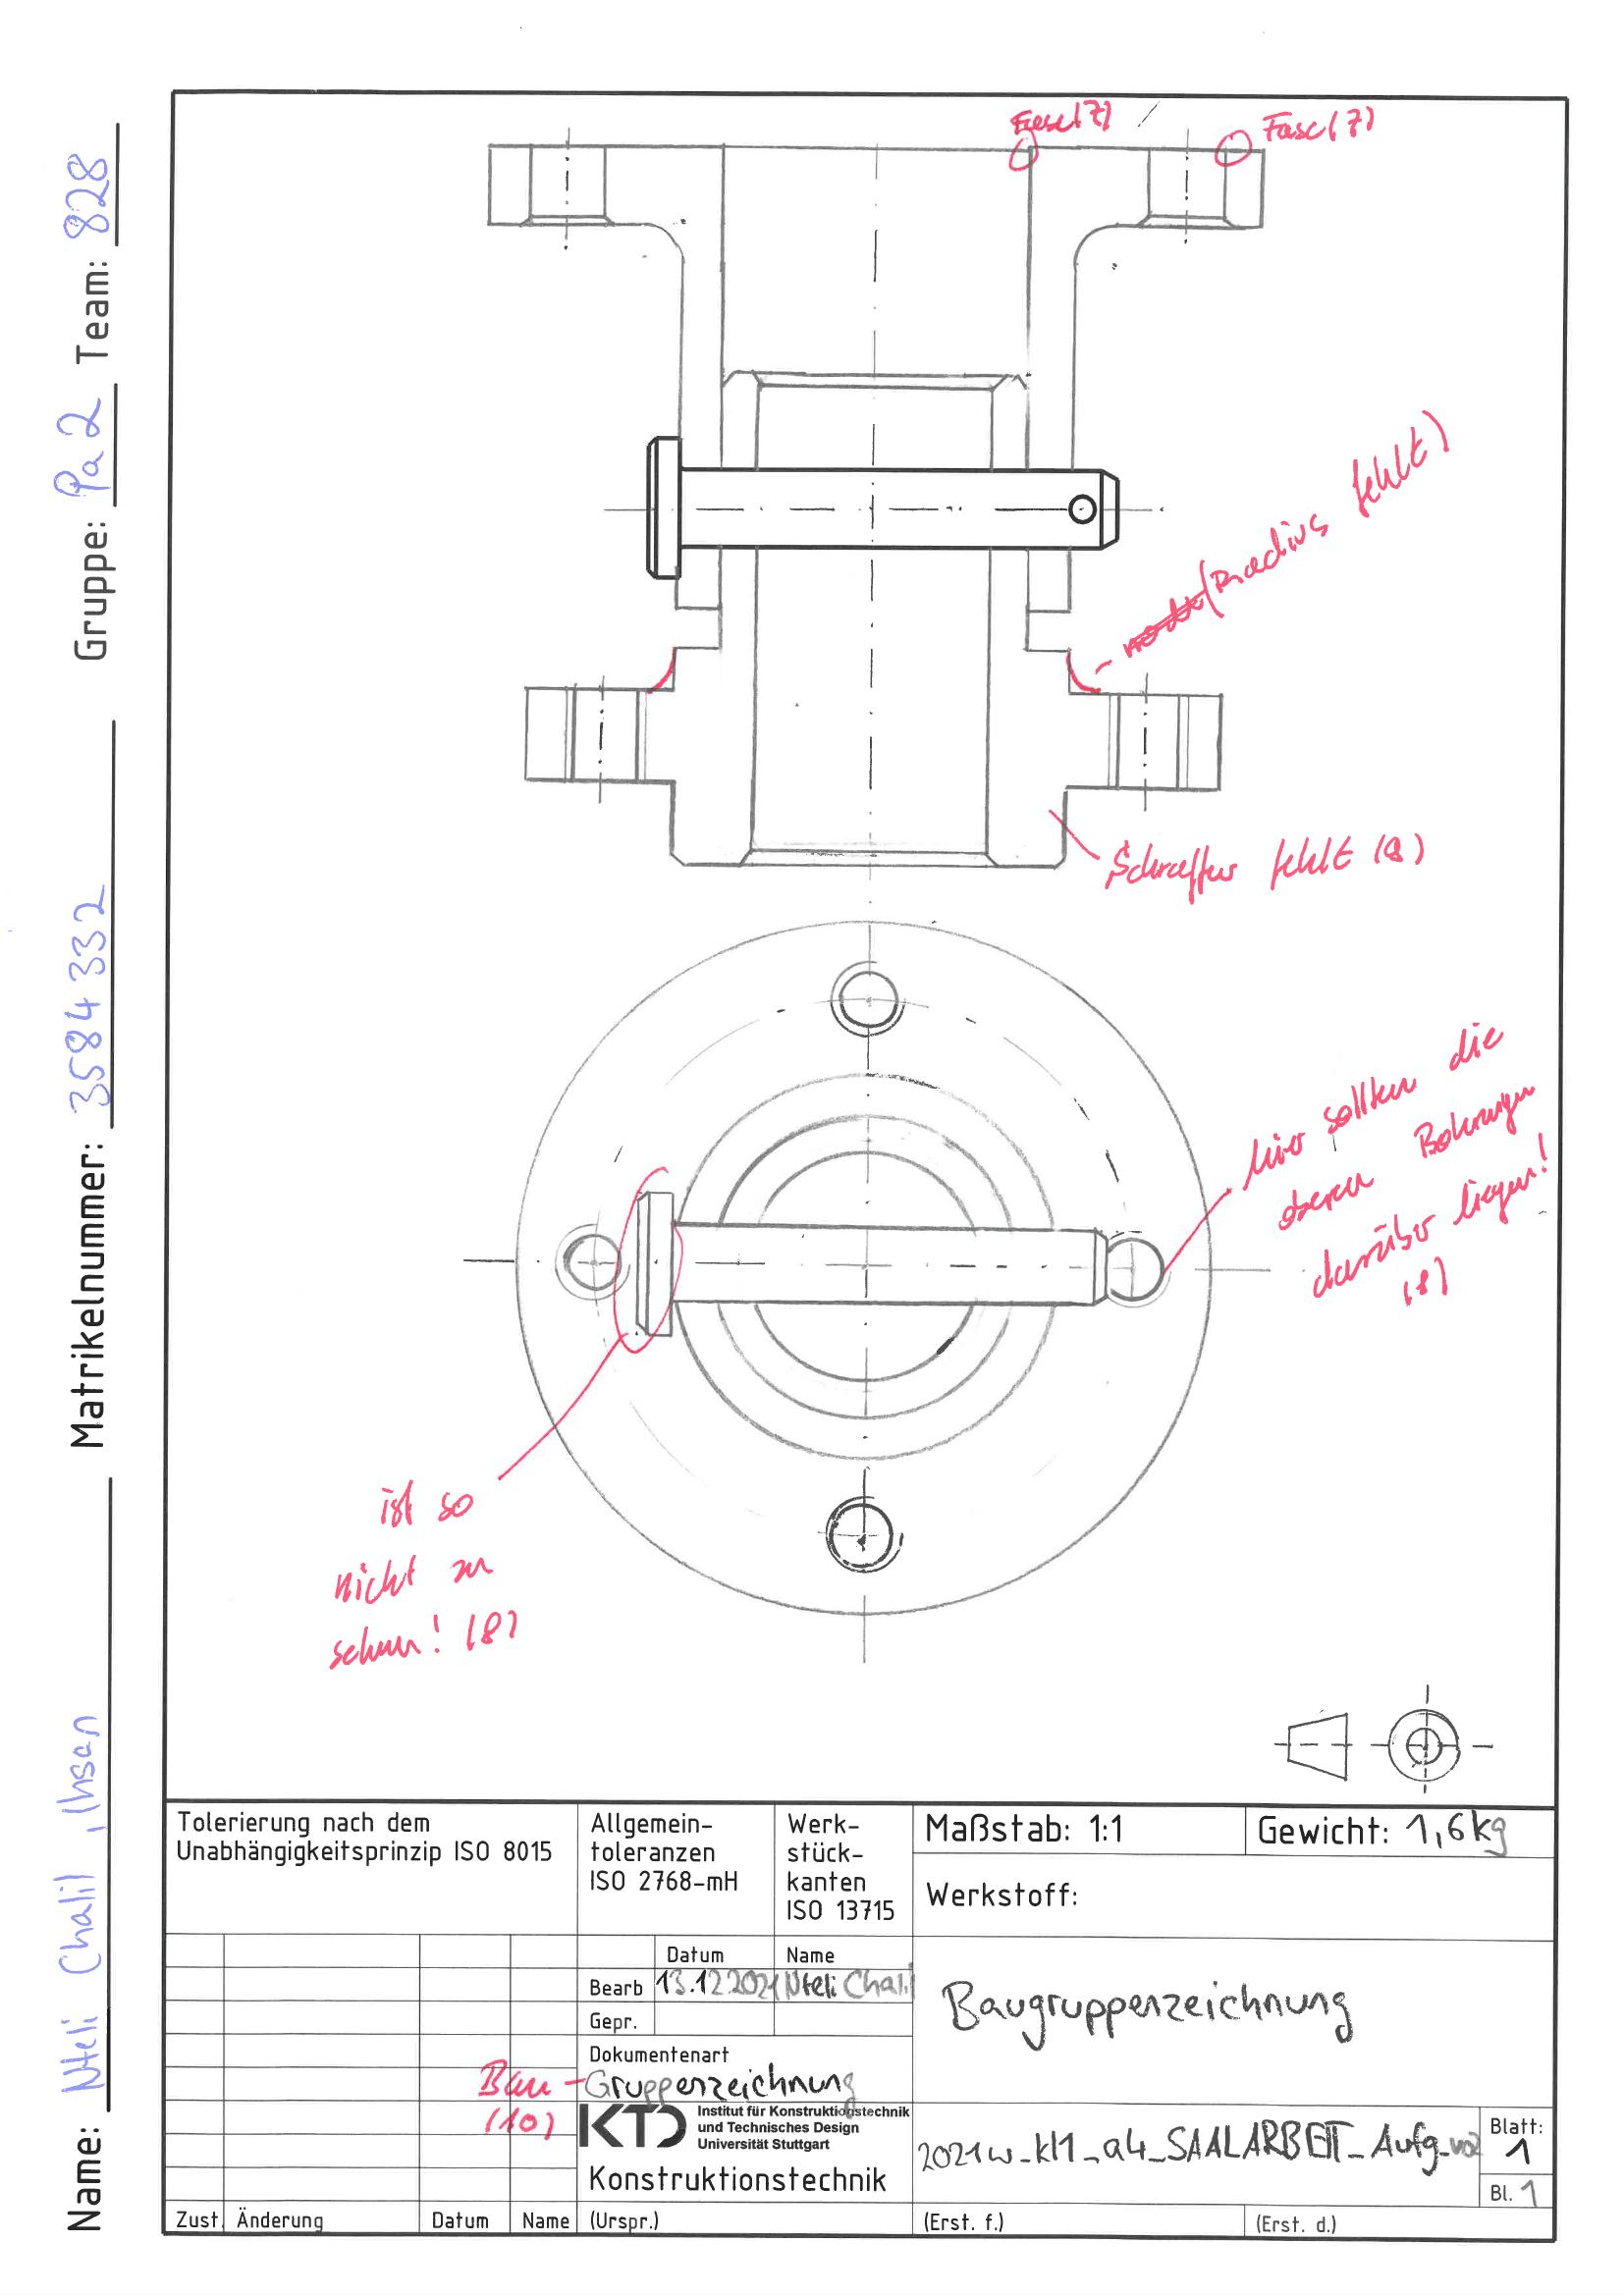 Name: Nteli Chalil, Ihsan Matrikelnummer: 3584332 Gruppe: Pa 2 Team: 828
Fase(7)
Fase(7)
(Radius fehlt)
Schraffur fehlt (8)
hier sollten die
oberen Bohrungen
darüber liegen!
(8)
ist so
nicht zu
sehen! (8)
Tolerierung nach dem
Unabhängigkeitsprinzip ISO 8015
Allgemein-
toleranzen
ISO 2768-mH
Werk-
stück-
kanten
ISO 13715
Maßstab: 1:1
Gewicht: 1,6kg
Werkstoff:
Datum Name
Bearb 13.12.2021 Nteli Chalil
Gepr.
Baugruppenzeichnung
Dokumentenart
Bau-Gruppenzeichnung
(10)
KTD Institut für Konstruktionstechnik
und Technisches Design
Universität Stuttgart
Konstruktionstechnik
2021w_kl1_a4_SAALARBEIT_Aufg_v02
Blatt:
1
Bl. 1
Zust. Änderung Datum Name (Urspr.) (Erst. f.) (Erst. d.)